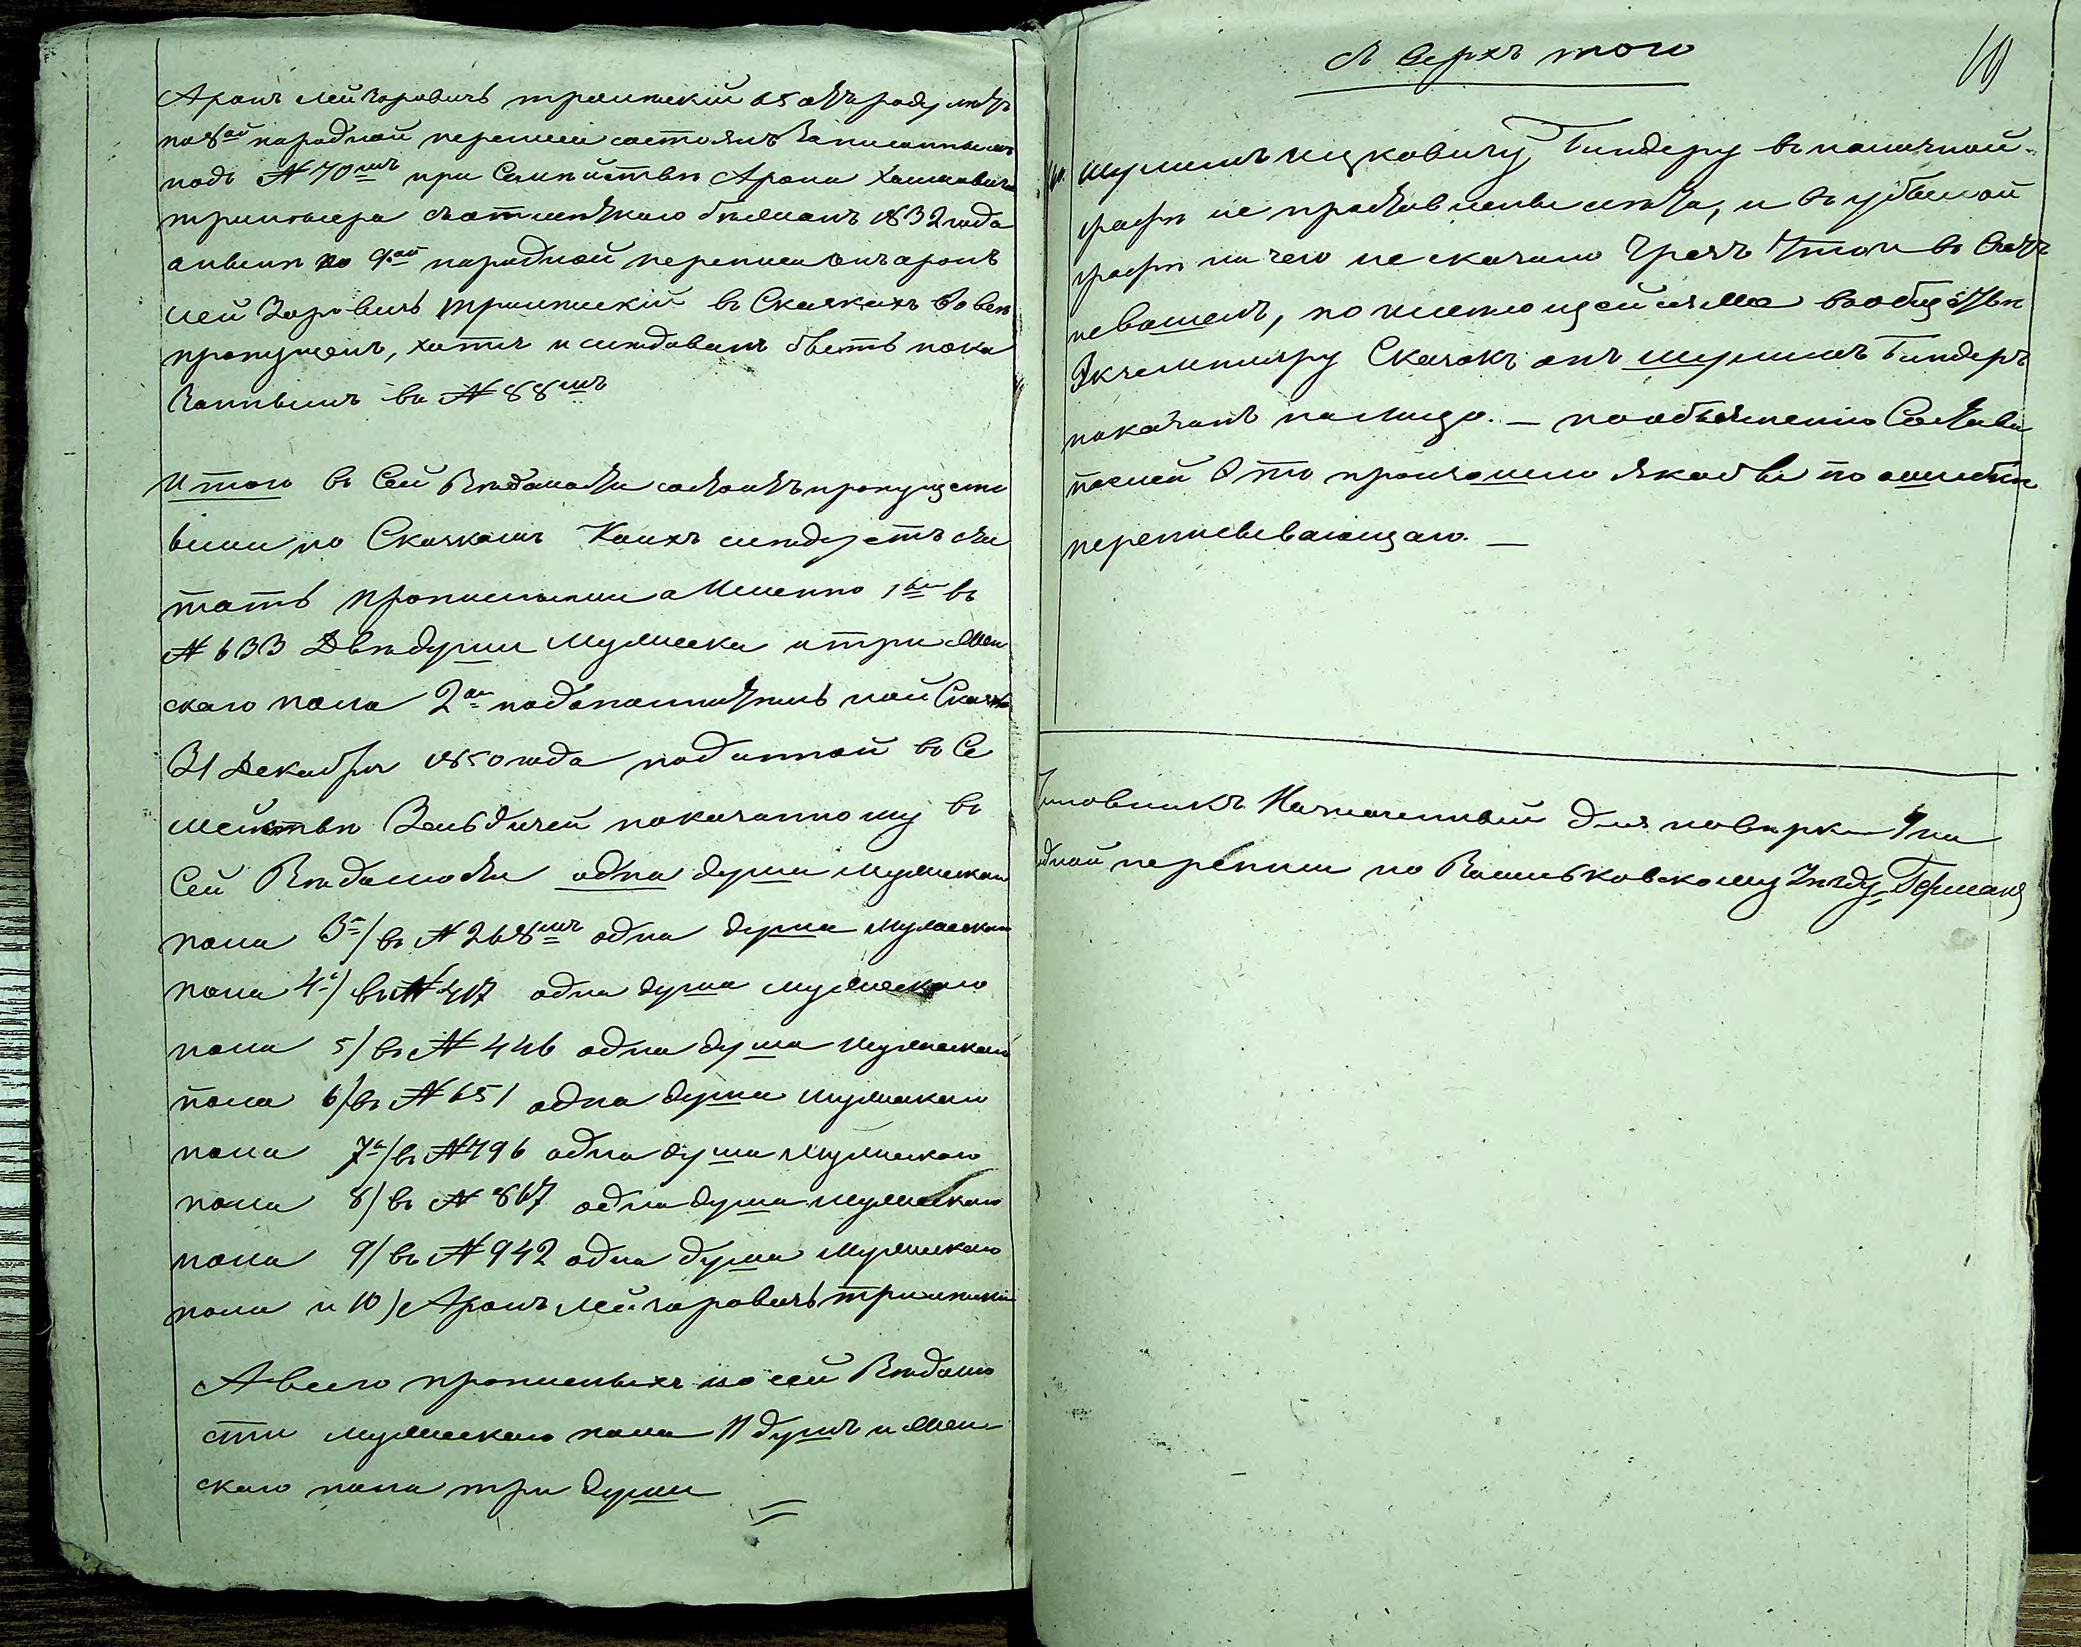 Аронъ Лейзоровичъ Триліський 65 отъ роду летъ
по 8ой народной переписи состоялъ Записаннымъ
подъ № 70мъ при Семействѣ Арона Хаимовича
съ отметкою 1832 года
а нынѣ по 9.ой народной переписи онъ Аронъ
Лей Зоровичъ въ Сказкахъ вовсе
пропущенъ, хотя и следовалъ быть пока
Заннымъ въ № 88мъ
Итого въ Сей Вѣдомости пропущено
выми по Сказкамъ Коихъ следуетъ счи
тать прописными а Именно 1ые въ
№ 633 Двѣ души мужеска и три жен
скаго пола 2ая по дополнительной Сказкѣ
31 Декабря 1850 года поданной въ Се
мействѣ показанному въ
Сей Вѣдомости одна душа мужескаго
пола 3я/ въ № 268мъ одна душа мужескаго
пола 4я/ въ № 417 одна душа мужескаго
пола 5/ въ № 446 одна душа мужескаго
пола 6/ въ № 651 одна душа мужескаго
пола 7я/ въ № 796 одна душа мужескаго
пола 8/ въ № 867 одна душа мужескаго
пола 9/ въ № 942 одна душа мужескаго
пола и 10) Аронъ Лейзоровичъ
А всего прописныхъ по сей Вѣдомо
сти мужескаго пола 11 душъ и жен
скаго пола три души
Съ верхъ того
Ицковичу Биндеру въ наличной
графѣ не проставлены лѣта, и въ убылой
графѣ ни чего не сказано
по имеющемуся въ обществѣ
Экземпляру Сказокъ онъ Биндеръ
показанъ на лицо. — по объясненію Состави
телей Это произошло якобы по ошибке
переписывающаго. —
Чиновникъ Назначенный для поверки 9 на
родной переписи по Васильковскому Уѣзду